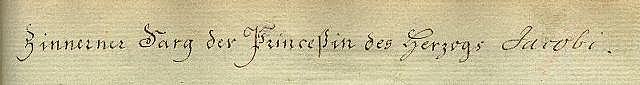 Zinnerner Sarg der Princeßin des Herzogs Jacobi.